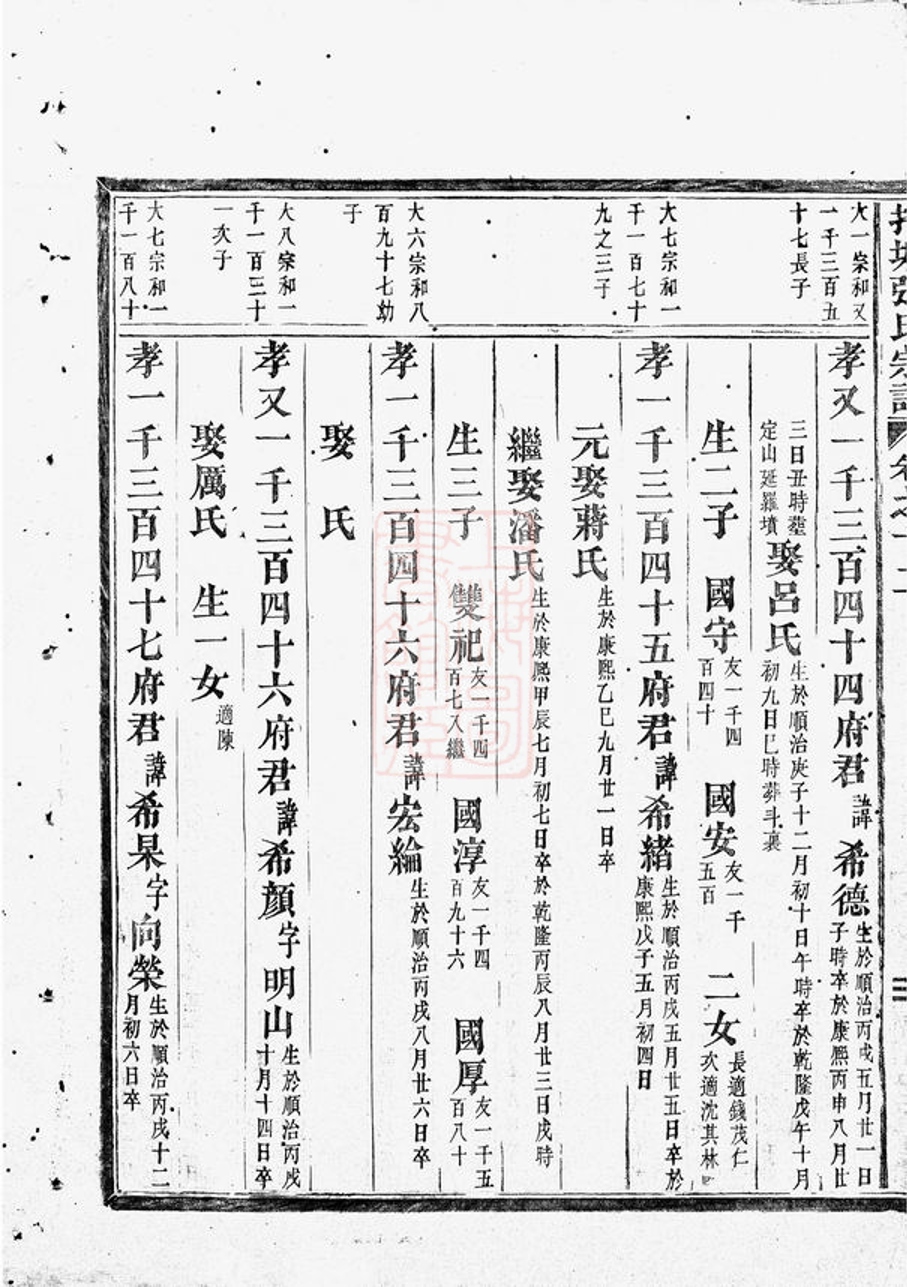 張氏宗譜 卷之十二
大一宗和又
一千三百五
十七長子
孝又一千三百四十四府君 諱 希德 生於順治丙戌五月廿一日
子時卒於康熙丙申八月廿
三日丑時塟
定山延羅墳 娶呂氏 生於順治庚子十二月初十日午時卒於乾隆戊午十月
初九日巳時葬斗裏
生二子 國守 友一千四
百四十 國安 友一千
五百 二女 長適錢茂仁
次適沈其林
大七宗和一
千一百七十
九之三子
孝一千三百四十五府君 諱 希緒 生於順治丙戌五月廿五日卒於
康熙戊子五月初四日
元娶蔣氏 生於康熙乙巳九月廿一日卒
繼娶潘氏 生於康熙甲辰七月初七日卒於乾隆丙辰八月廿三日戌時
生三子 雙祀 友一千四
百七入繼 國淳 友一千四
百九十六 國厚 友一千五
百八十
大六宗和八
百九十七幼
子
孝一千三百四十六府君 諱 宏綸 生於順治丙戌八月廿六日卒
娶 氏
大八宗和一
千一百三十
一次子
孝又一千三百四十六府君 諱 希顏 字 明山 生於順治丙戌
十月十四日卒
娶厲氏 生一女 適陳
大七宗和一
千一百八十
孝一千三百四十七府君 諱 希杲 字 向榮 生於順治丙戌十二
月初六日卒